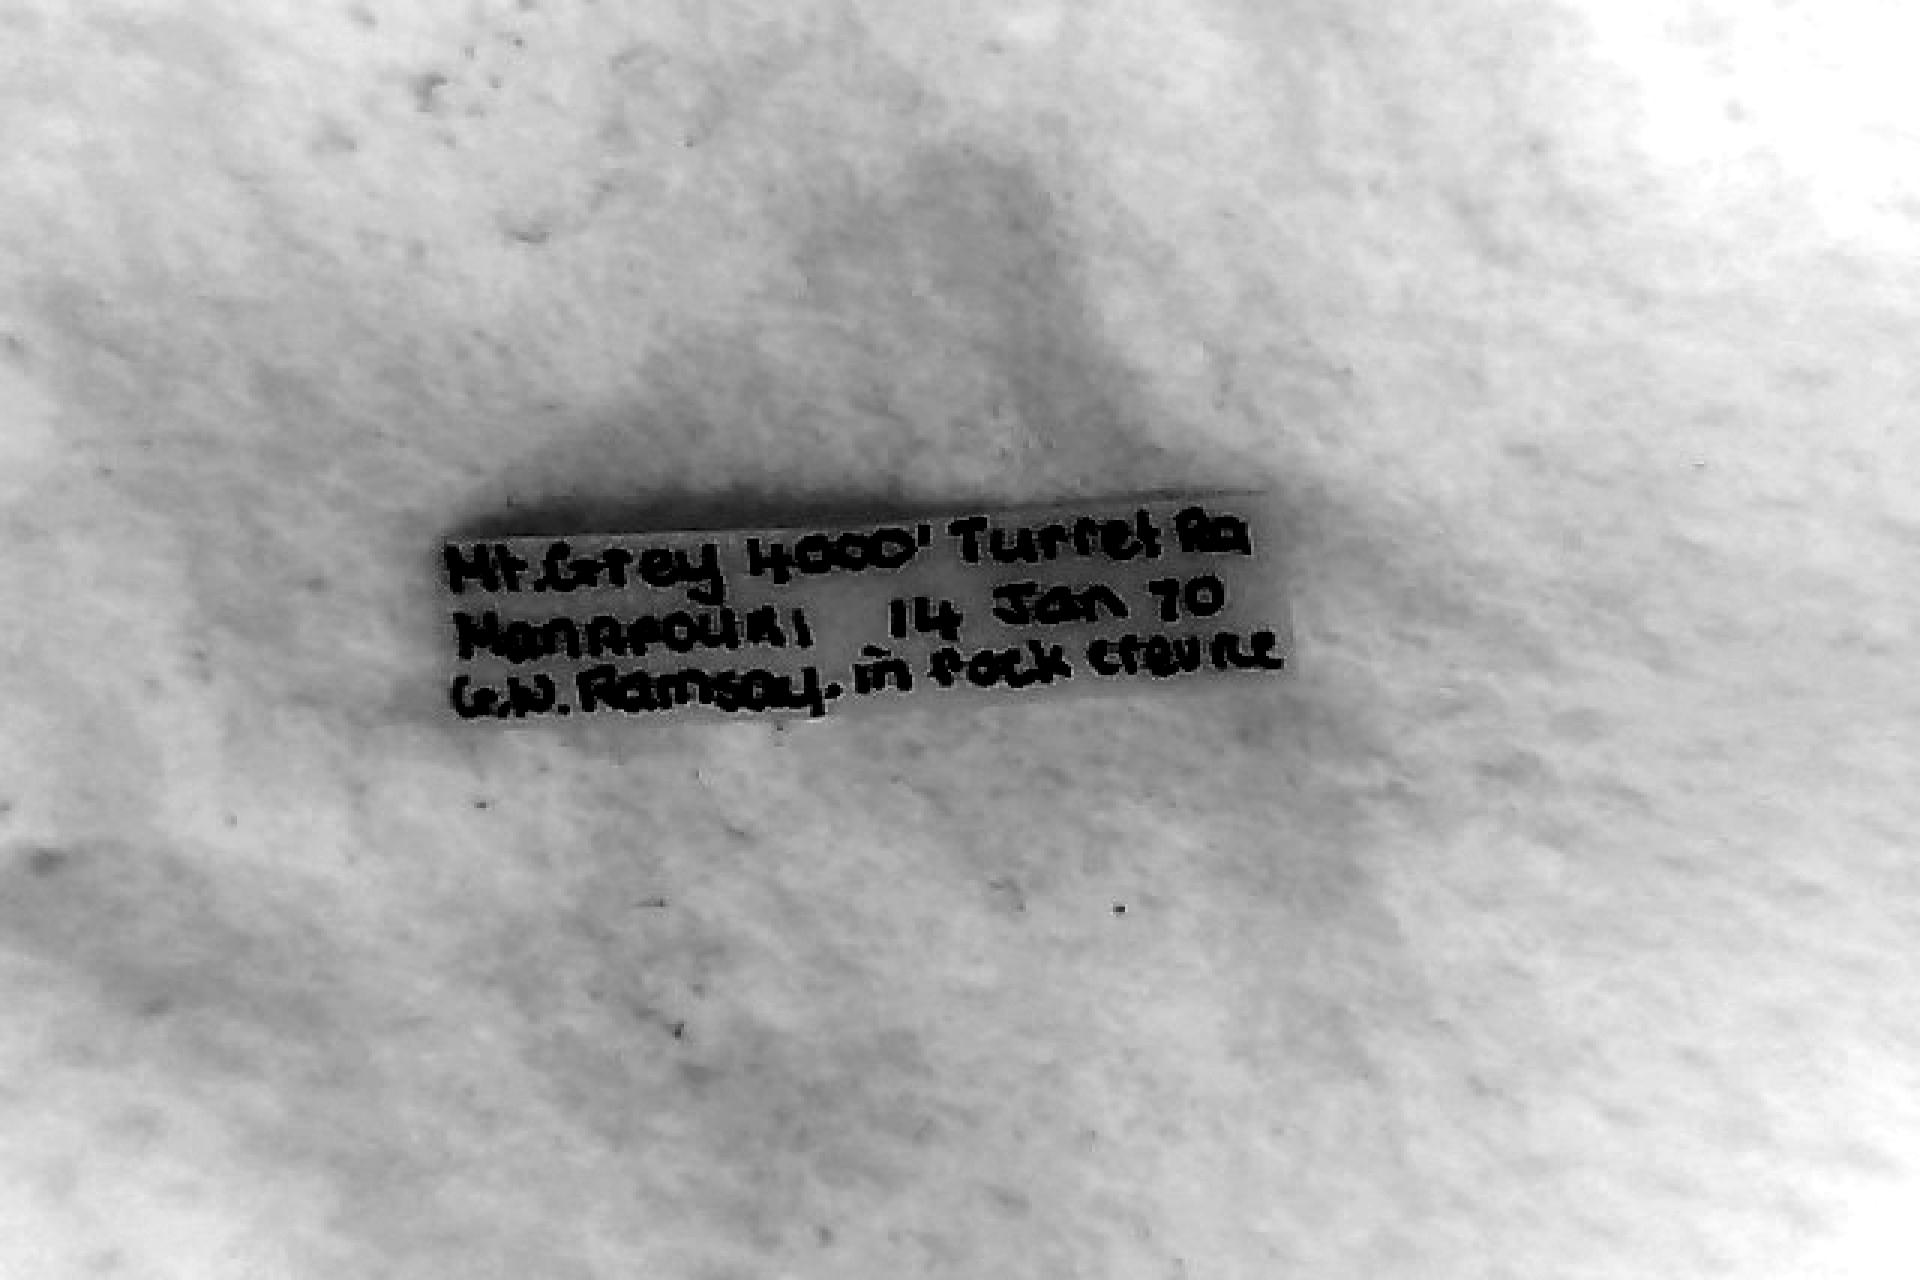 Mt. Grey 4000' Turret Ra
Manapouri 14 Jan 70
G.W. Ramsay. in rock crevice